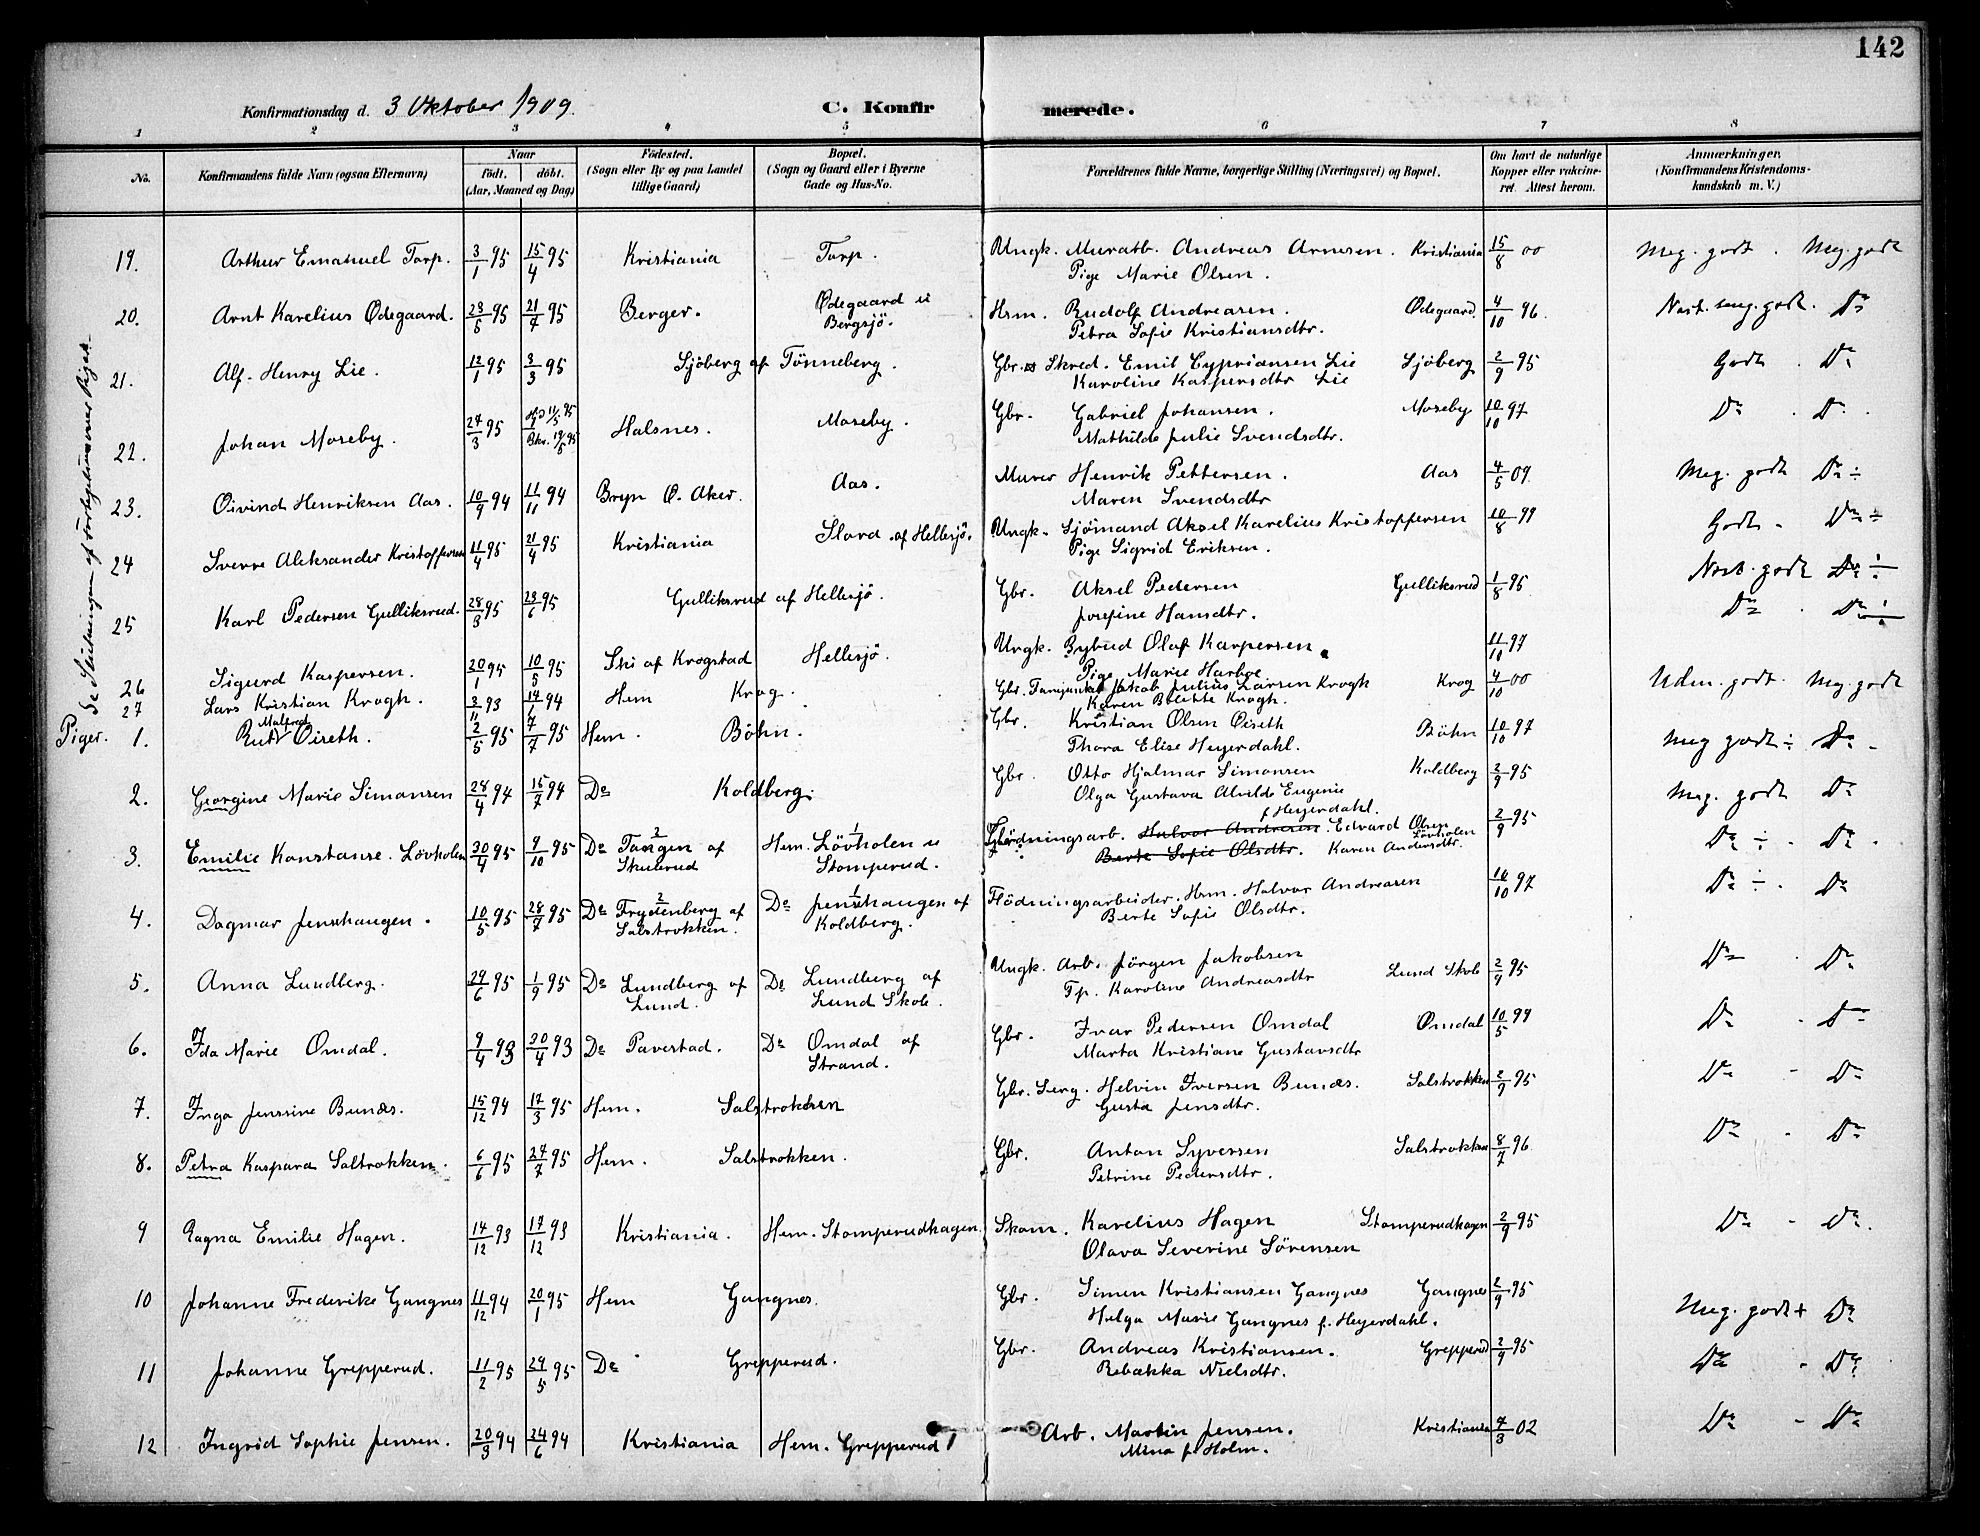 142
Konfirmationsdag d. 3 Oktober 1909. C. Konfirmerede.
1 2 3 4 5 6 7 8
No. Konfirmandens fulde Navn (ogsaa Efternavn) Naar født. døbt. (Aar, Maaned og Dag) Fødested. (Sogn eller By og paa Landet tillige Gaard) Bopæl. (Sogn og Gaard eller i Byerne Gade og Hus-No. Forældrenes fulde Navne, borgerlige Stilling (Næringsvei) og Bopæl. Om havt de naturlige Kopper eller vakcineret. Attest herom. Anmærkninger. (Konfirmandens Kristendomskundskab m. V.)
19. Arthur Emanuel Torp. 3/1 95 15/4 95 Kristiania Torp. Ungk. Muratb. Andreas Arnesen. Kristiania 15/8 00 Meg. godt. Meg godt
Pige Marie Olsen.
20. Arnt Karelius Ødegaard. 23/5 95 21/7 95 Berger. Ødegaard u Bergsjö. Hsm. Rudolf Andreasen. Ødegaard. 4/10 96. Næst. meg. godt. Do
Petra Sofie Kristiansdtr.
21. Alf. Henry Lie. 12/1 95 3/3 95 Sjöberg af Tönneberg. Gbr. Skred. Emil Cypriansen Lie Sjöberg 2/9 95 Godt. Do
Karoline Kaspersdtr Lie
22. Johan Moseby. 24/3 95 Halsnes. Moseby. Gbr. Gabriel Johansen. Moseby 10/10 97 Do. Do.
Mathilde Julie Svendsdtr.
23. Öivind Henriksen Aas. 10/9 94 11/11 94 Bryn Ø. Aker. Aas. Murer Henrik Pettersen. Aas 4/5 09. Meg. godt Do ÷
Maren Svendsdtr
24 Sverre Aleksander Kristoffersen 11/4 95 21/4 95 Kristiania Slora af Hellesjö. Ungk. Sjömand Aksel Karelius Kristoffersen 10/8 99 Godt. Do ÷
Pige Sigrid Eriksen.
25 Karl Pedersen Gulliksrud. 28/3 95 23/6 95 Gulliksrud af Hellesjö. Gbr. Aksel Pedersen Gulliksrud 1/8 95 Næst. godt Do ÷
Josefine Hansdtr.
26 Sigurd Kaspersen. 20/1 95 10/5 95 Ski af Krogstad Hellesjö. Ungk. Bybud Olaf Kaspersen 11/10 97 Do. Do ÷
Pige Marie
27 Lars Kristian Krogh. 3/11 93 14/1 94 Hem Krog. Gbr. Jakob Julius Larsen Krogh Krog 4/10 00 Udm. godt. Meg. godt
Karen Krogh.
Piger. 1. Rut Malfred Oiseth. 2/5 95 7/7 95 Hem. Böhn. Gbr. Kristian Olsen Oiseth Böhn 10/10 97 Meg godt ÷ Do.
Thora Elise Heyerdahl.
2. Georgine Marie Simonsen 28/4 94 15/7 94 Do Koldberg. Gbr. Otto Hjalmar Simonsen Koldberg 2/9 95 Meg. godt Do
Olga Gustava Alvilde Eugenie f. Heyerdahl.
3. Emilie Konstanse. Lövholen 30/4 95 9/10 95 Do Tangen af Skulerud Hem. Lövholen u Stomperud. Flödningsarb. Halvor Andresen. Edvard Olsen Lövholen 2/9 95 Do ÷. Do.
Berte Sofie Olsdtr. Karen Andersdtr.
4. Dagmar Jenshaugen. 10/5 95 28/7 95 Do Frydenberg af Salstrokken. Do Jenshaugen af Koldberg. Flödningsarbeider. Hsm. Halvor Andreasen 10/10 97 Do ÷. Do
Berte Sofie Olsdtr.
5. Anna Lundberg. 29/6 95 1/9 95 Do Lundberg af Lund. Do Lundberg af Lund Skole. Ungk. Arb. Jörgen Jakobsen Lund Skole 2/9 95 Do. Do.
Tp. Karoline Andreasdtr
6. Ida Marie Omdal. 9/4 93 30/4 93 Do Taverstad. Do Omdal af Strand. Gbr. Ivar Pedersen Omdal Omdal 10/5 99 Do - Do
Marta Kristiane Gustavsdtr
7. Inga Jenssine Bunæs. 15/12 94 17/3 95 Hem. Salstrokken Gbr. Serg. Helvin Iversen Bunæs. Salstrokken 2/9 95 Do - Do
Gusta Jensdtr.
8. Petra Kaspara Saltrokken. 6/6 95 27/7 95 Hem. Salstrokken. Gbr. Anton Syversen Salstrokken 8/7 96 Do - Do
Petrine Pedersdtr.
9 Ragna Emilie Hagen. 14/12 93 17/12 93 Kristiania. Hem. Stomperudhagen. Skom. Karelius Hagen Stomperudhagen 2/9 95 Do - Do.
Olava Severine Sörensen
10 Johanne Frederike Gangnes 11/12 94 20/1 95 Hem Gangnes. Gbr. Simen Kristiansen Gangnes Gangnes 2/9 95 Meg. godt + Do
Helga Marie Gangnes f. Heyerdahl.
11 Johanne Grepperud. 11/2 95 29/5 95 Do Grepperud. Gbr. Andreas Kristiansen. Grepperud 2/9 95 Do - Do
Rebækka Nielsdtr.
12 Ingrid Sophie Jensen. 20/3 94 24/6 94 Kristiania Hem. Grepperud Arb. Martin Jensen. Kristiania 7/3 02 Do - Do
Mina f. Holm.